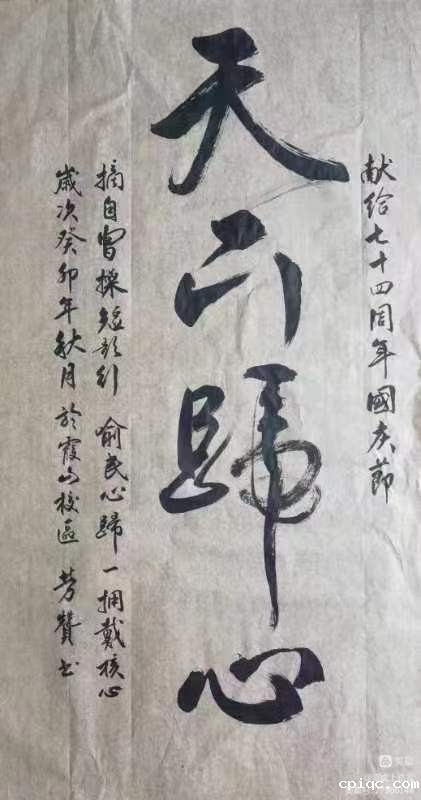 献给七十四周年國庆節
天下歸心
摘自曹操短歌行 喻民心歸一擁戴核心
歲次癸卯年秋月於霞山校區 芳贊书
cpiqc.com